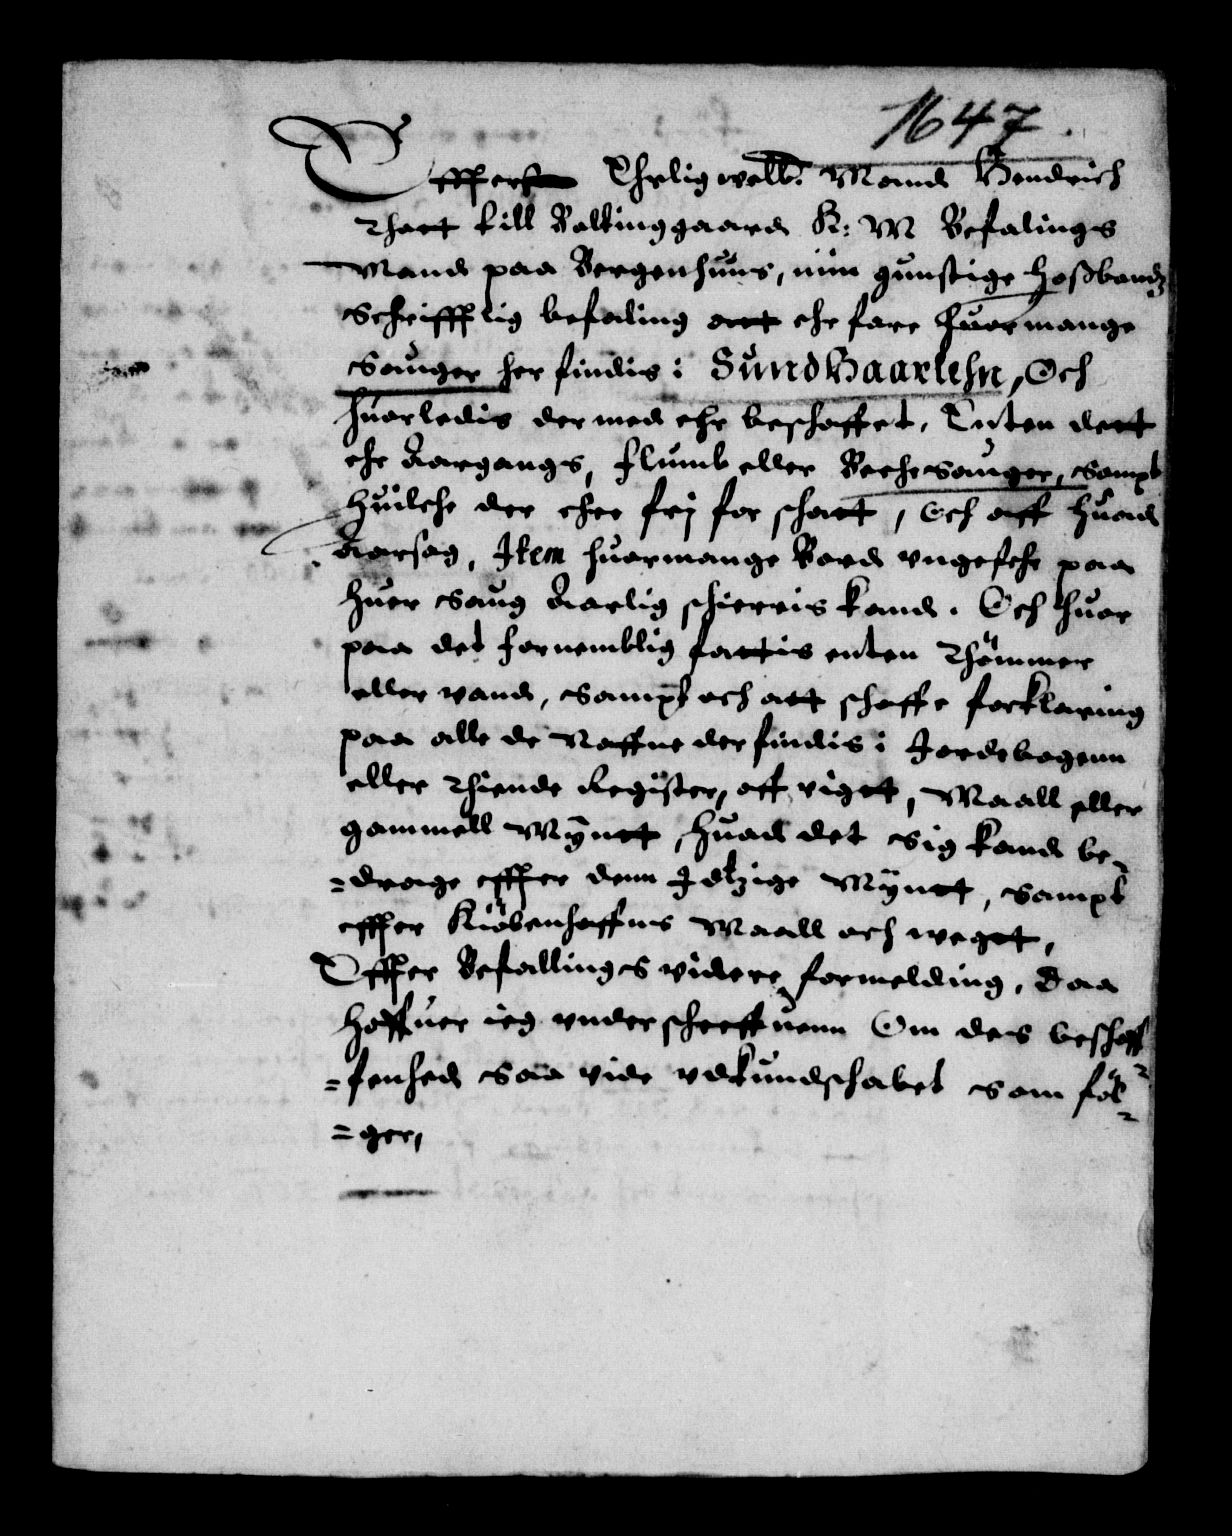 1647.
Effter Ehrlig welb: Mands Hendrich
Thott till Boltinggaard K: M Befalings
Mand paa Bergenhuus, min gunstige Hoßbondz
Schrifftlig befaling att ehrfare huormange
Sauger her findis i SundHaarlehn, Och
huorledis dermed ehr beschaffet, Enten dett
ehr Aargangs, flumb eller Beche sauger, sampt
Huilche der eher frj for schatt, Och aff huad
Aarsag, Item huormange Bord vngefehr paa
huer saug Aarlig schierris kand. Och huor
paa det fornemblig fattis enten Thømmer
eller vand, sampt och att schaffe forklaring
paa alle de Naffne der findis i Jordebogenn
eller Thiende Register, aff vigtt, Maall eller
gammell Myntt, huad det sig kand be-
=drage effter denn Jdtzige Myntt, sampt
effter Kiøbenhaffns Maall och wegtt,
Effter Befallings videre formelding, Daa
Haffuer ieg vnderscheffuenn Om des beschaff
=fenhed saa vide vdkundschabet som føl-
=ger,